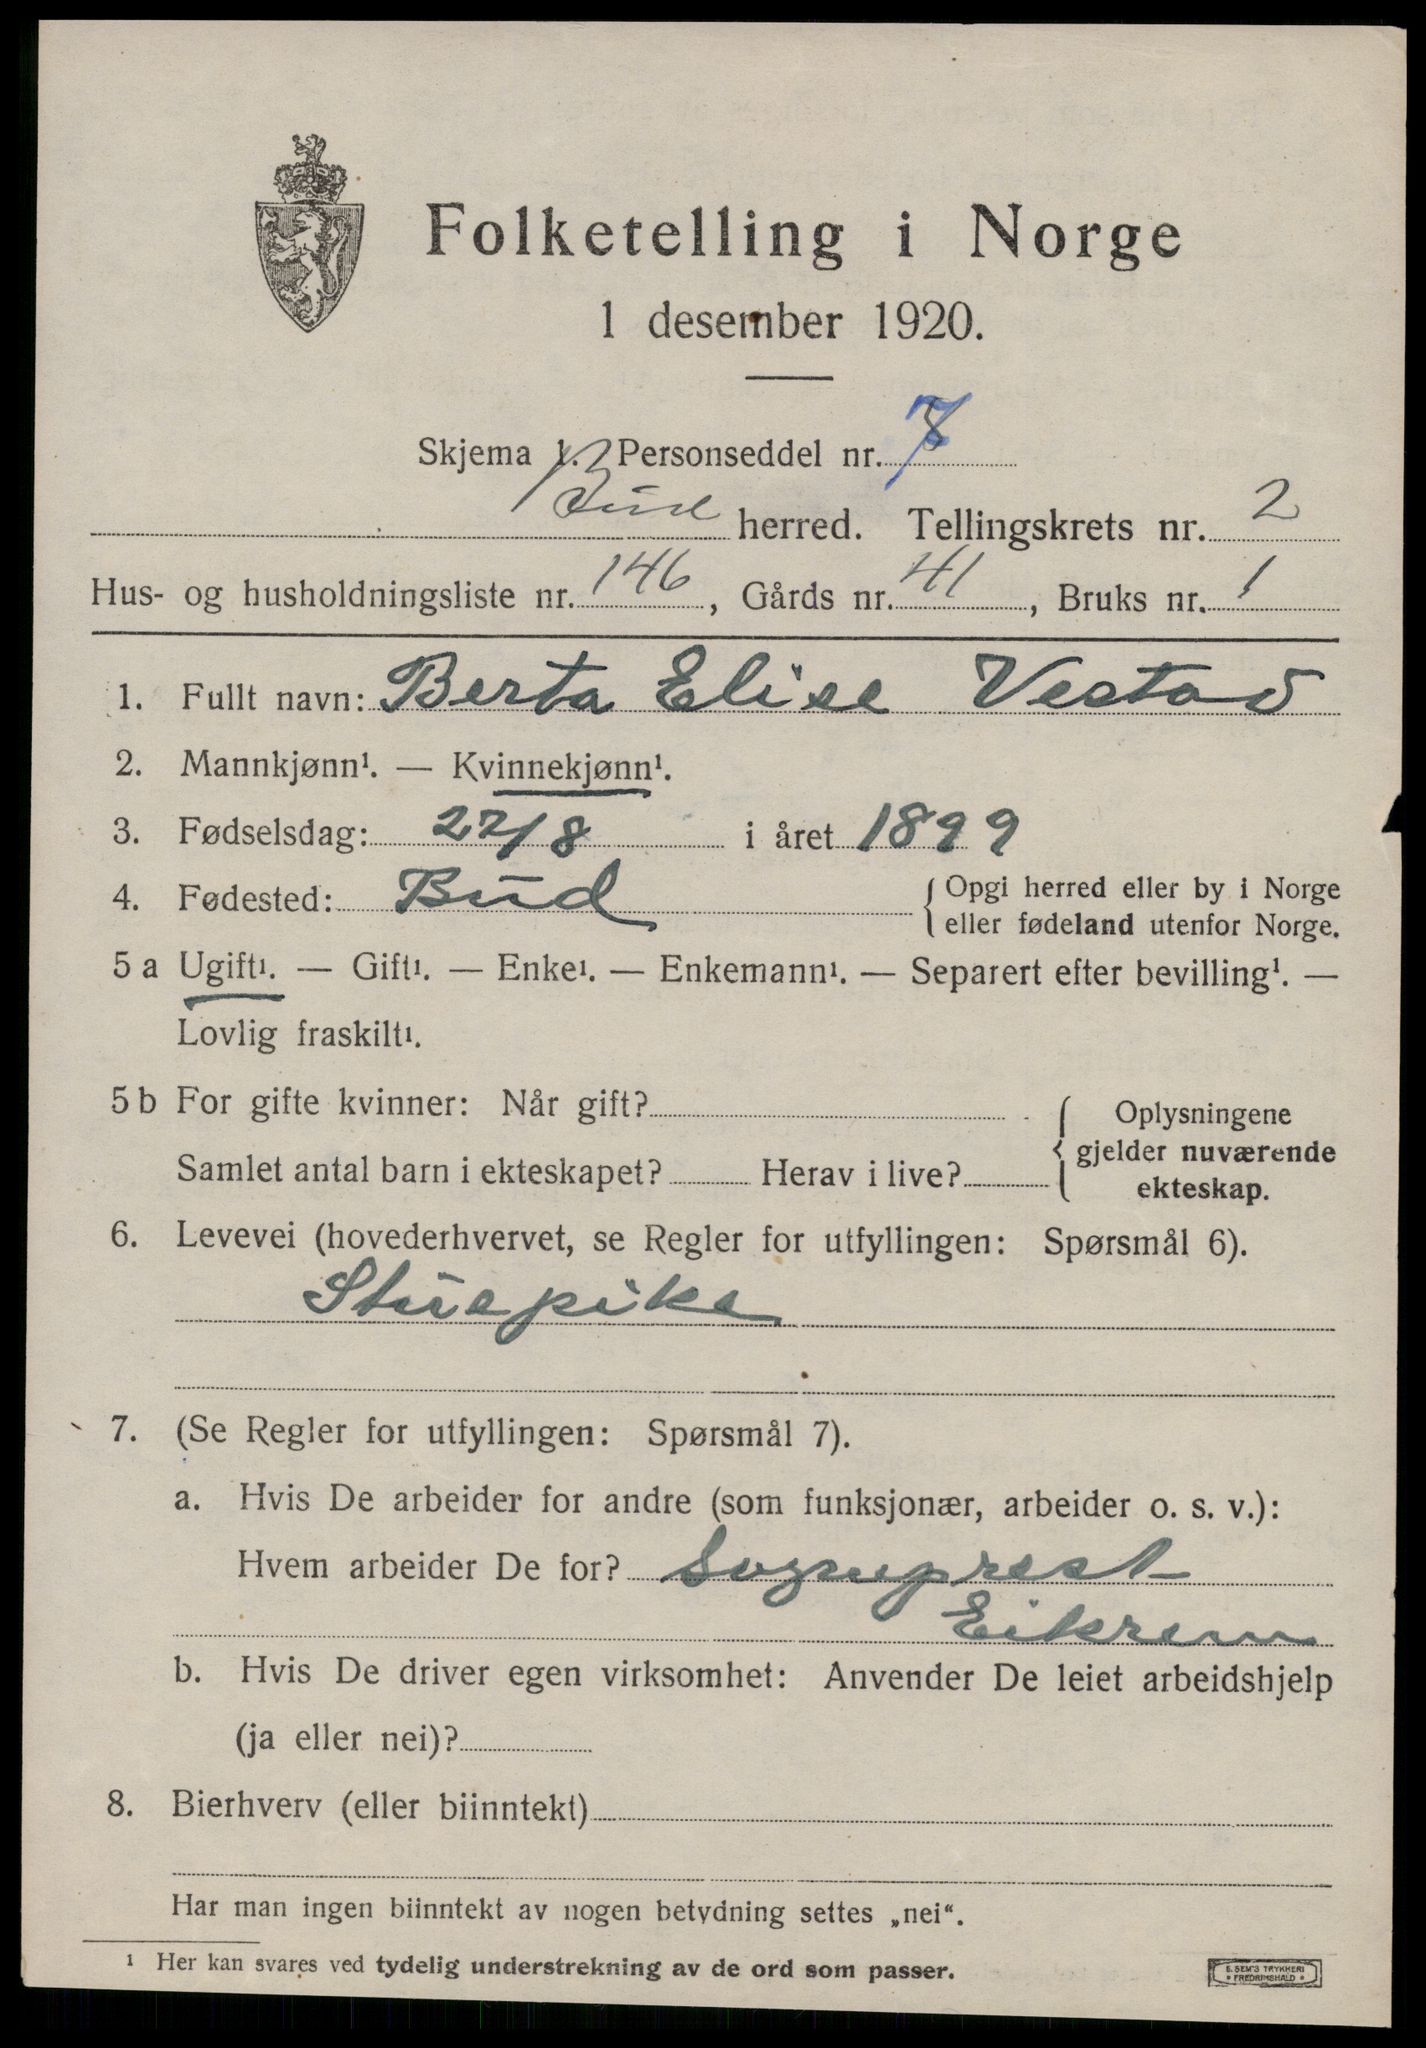 Folketelling i Norge
1 desember 1920.
Skjema 1. Personseddel nr. 7
Bud herred. Tellingskrets nr. 2
Hus- og husholdningsliste nr. 146, Gårds nr. 41, Bruks nr. 1
1. Fullt navn: Berta Elise Vestad
2. Mannkjønn¹. — Kvinnekjønn¹.
3. Fødselsdag: 22/8 i året 1899
4. Fødested: Bud { Opgi herred eller by i Norge
eller fødeland utenfor Norge.
5 a Ugift¹. — Gift¹. — Enke¹. — Enkemann¹. — Separert efter bevilling¹. —
Lovlig fraskilt¹.
5 b For gifte kvinner: Når gift? { Oplysningene
gjelder nuværende
Samlet antal barn i ekteskapet? Herav i live? ekteskap.
6. Levevei (hovederhvervet, se Regler for utfyllingen: Spørsmål 6).
Stuepike
7. (Se Regler for utfyllingen: Spørsmål 7).
a. Hvis De arbeider for andre (som funksjonær, arbeider o. s. v.):
Hvem arbeider De for? Sogneprest
Eikrem
b. Hvis De driver egen virksomhet: Anvender De leiet arbeidshjelp
(ja eller nei)?
8. Bierhverv (eller biinntekt)
Har man ingen biinntekt av nogen betydning settes „nei“.
¹ Her kan svares ved tydelig understrekning av de ord som passer.
E. SEM'S TRYKKERI
FREDRIKSHALD